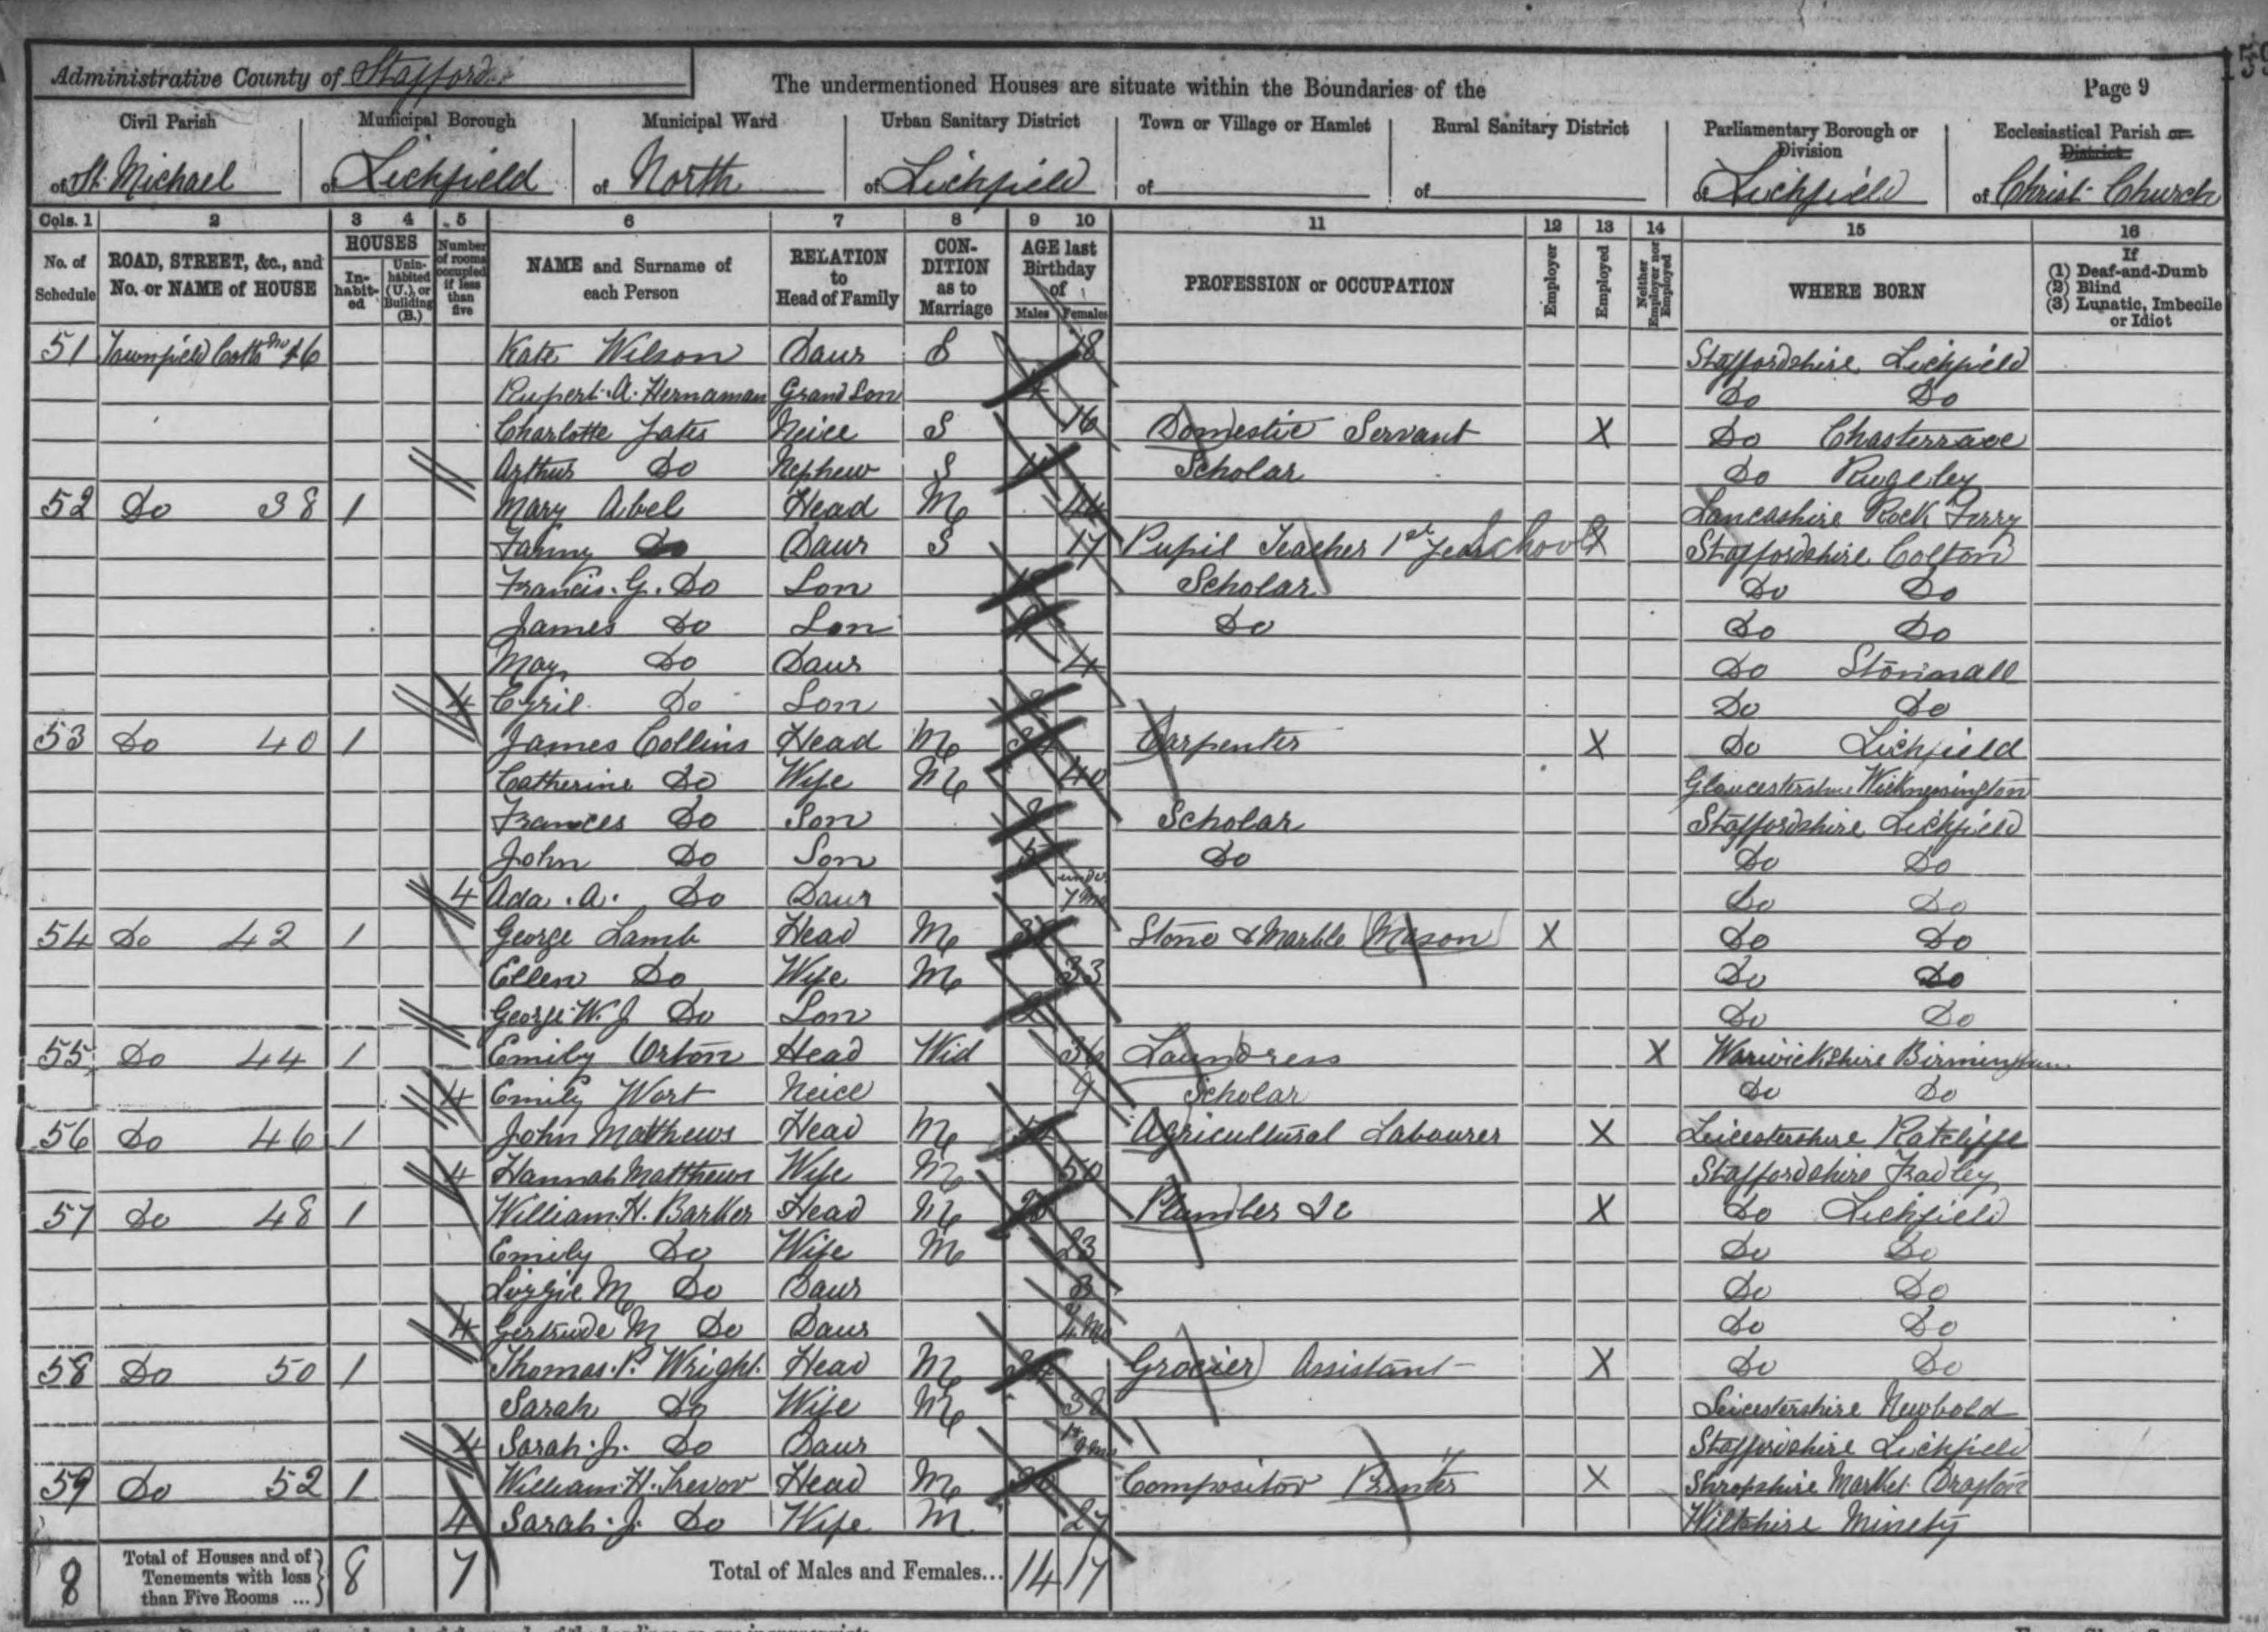 Administrative County of Stafford
The undermentioned Houses are situate within the Boundaries of the
Page 9
Civil Parish
of St. Michael
Municipal Borough
of Lichfield
Municipal Ward
of North
Urban Sanitary District
of Lichfield
Town or Village or Hamlet
of
Rural Sanitary District
of
Parliamentary Borough or Division
of Lichfield
Ecclesiastical Parish or District
of Christ Church
Cols. 1 2 3 4 5 6 7 8 9 10 11 12 13 14 15 16
No. of Schedule
ROAD, STREET, &c., and No. or NAME of HOUSE
HOUSES
In-habit-ed
Unin-habited (U.), or Building (B.)
Number of rooms occupied if less than five
NAME and Surname of each Person
RELATION to Head of Family
CON-DITION as to Marriage
AGE last Birthday of
Males Females
PROFESSION or OCCUPATION
Employer
Employed
Neither Employer nor Employed
WHERE BORN
If
(1) Deaf-and-Dumb
(2) Blind
(3) Lunatic, Imbecile or Idiot
51 Kate Wilson Daur S 18 Staffordshire Lichfield
Rupert. A. Hernaman Grand Son Do Do
Charlotte Yates Neice S 16 Domestic Servant X Do Chasterrace
Arthur Do Nephew S Scholar Do Rugeley
52 Do 38 1 Mary Abel Head M 44 Lancashire Rock Ferry
Fanny Do Daur S 17 Pupil Teacher 1st Year School X Staffordshire Colton
Francis. G. Do Son Scholar Do Do
James Do Son Do Do Do
May Do Daur 4 Do Stonnall
4 Cyril Do Son Do Do
53 Do 40 1 James Collins Head M Carpenter X Do Lichfield
Catherine Do Wife M 40 Gloucestershire
Frances Do Son Scholar Staffordshire Lichfield
John Do Son 5 Do Do Do
4 Ada. A. Do Daur under 7 mo Do Do
54 Do 42 1 George Lamb Head M Stone & Marble Mason X Do Do
Ellen Do Wife M 33 Do Do
George. W. J Do Son 2 Do Do
55 Do 44 1 Emily Orton Head Wid 36 Laundress X Warwickshire Birmingham
4 Emily Wort Neice 9 Scholar Do Do
56 Do 46 1 John Matthews Head M Agricultural Labourer X Leicestershire Ratcliffe
4 Hannah Matthews Wife M 50 Staffordshire Fradley
57 Do 48 1 William. H. Barker Head M Plumber &c X Do Lichfield
Emily Do Wife M 23 Do Do
Lizzie M Do Daur Do Do
4 Gertrude M Do Daur 4 Mo Do Do
58 Do 50 1 Thomas. P. Wright Head M Grocier Assistant X Do Do
Sarah Do Wife M Leicestershire Newbold
4 Sarah. J. Do Daur Staffordshire Lichfield
59 Do 52 1 William. H. Trevor Head M Compositor Printer X Shropshire Market Drayton
4 Sarah. J. Do Wife M 27 Wiltshire Minety
8 Total of Houses and of Tenements with less than Five Rooms ... 8 7 Total of Males and Females... 14 17